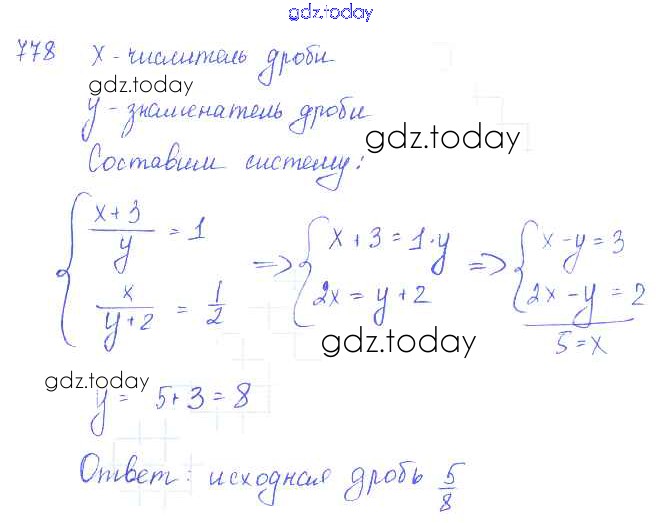 gdz.today
778 x - числитель дроби
gdz.today
y - знаменатель дроби
gdz.today
Составим систему:
{ (x+3)/y = 1 => { x+3=1·y => { x-y=3
x/(y+2) = 1/2 2x=y+2 2x-y=2
5=x
gdz.today
gdz.today
y = 5+3=8
Ответ: исходная дробь 5/8